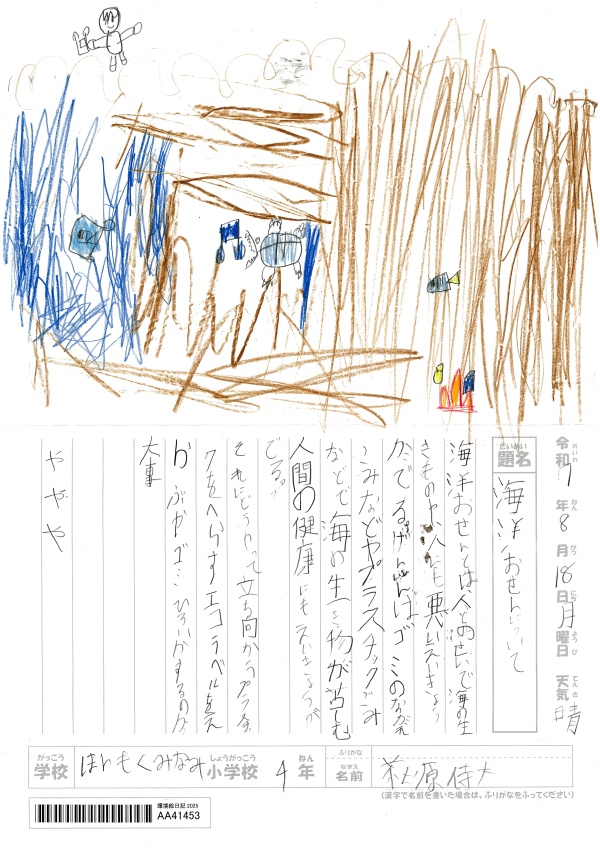 令和7年8月18日月曜日 天気 晴
れいわ ねん がつ にち ようび てんき
題名 海洋おせんについて
だいめい
海洋おせんとは、人とのせいで海の生
きものや人にも悪いえいきょう
がでるげんいんはゴミのながれ
こみなどやプラスチックごみ
などで海の生き物が苦しむ
人間の健康にもえいきょうが
でる。
それにどうやって立ち向かうプラ
クをへらすエコラベルを
か ゴミひろいがするのが
大事
ややや
がっこう 学校 ほんもくみなみ しょうがっこう 小学校 4 ねん 年 ふりがな なまえ 名前 原侍大
(漢字で名前を書いた場合は、ふりがなをふってください)
環境絵日記 2025
AA41453